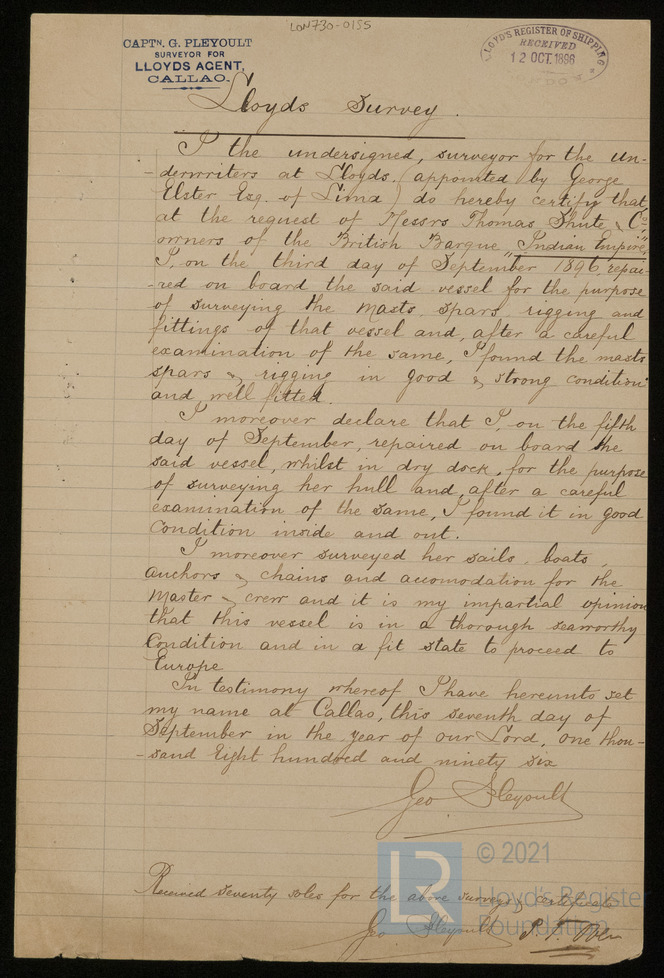 LON730-0155
CAPTN. G. PLEYOULT
SURVEYOR FOR
LLOYDS AGENT,
CALLAO.
LLOYD'S REGISTER OF SHIPPING
RECEIVED
12 OCT. 1896
Lloyds Survey.
I the undersigned, surveyor for the un-
-derwriters at Lloyds (appointed by George
Elster Esq. of Lima) do hereby certify that
at the request of Messrs Thomas Shute & Co.
owners of the British Barque "Indian Empire",
I, on the third day of September 1896, repai-
-red on board the said vessel for the purpose
of surveying the masts, spars, rigging and
fittings of that vessel and, after a careful
examination of the same, I found the masts
spars & rigging in good & strong condition
and well fitted.
I moreover declare that I, on the fifth
day of September, repaired on board the
said vessel, whilst in dry dock, for the purpose
of surveying her hull and, after a careful
examination of the same, I found it in good
condition inside and out.
I moreover surveyed her sails, boats,
anchors & chains and accomodation for the
Master & crew and it is my impartial opinion
that this vessel is in a thorough seaworthy
Condition and in a fit state to proceed to
Europe
In testimony whereof I have hereunto set
my name at Callao, this seventh day of
September in the year of our Lord, one thou-
-sand Eight hundred and ninety six
Geo Pleyoult
© 2021
Lloyd's Register
Foundation
LR
Received seventy soles for the above survey & certificate
Geo Pleyoult